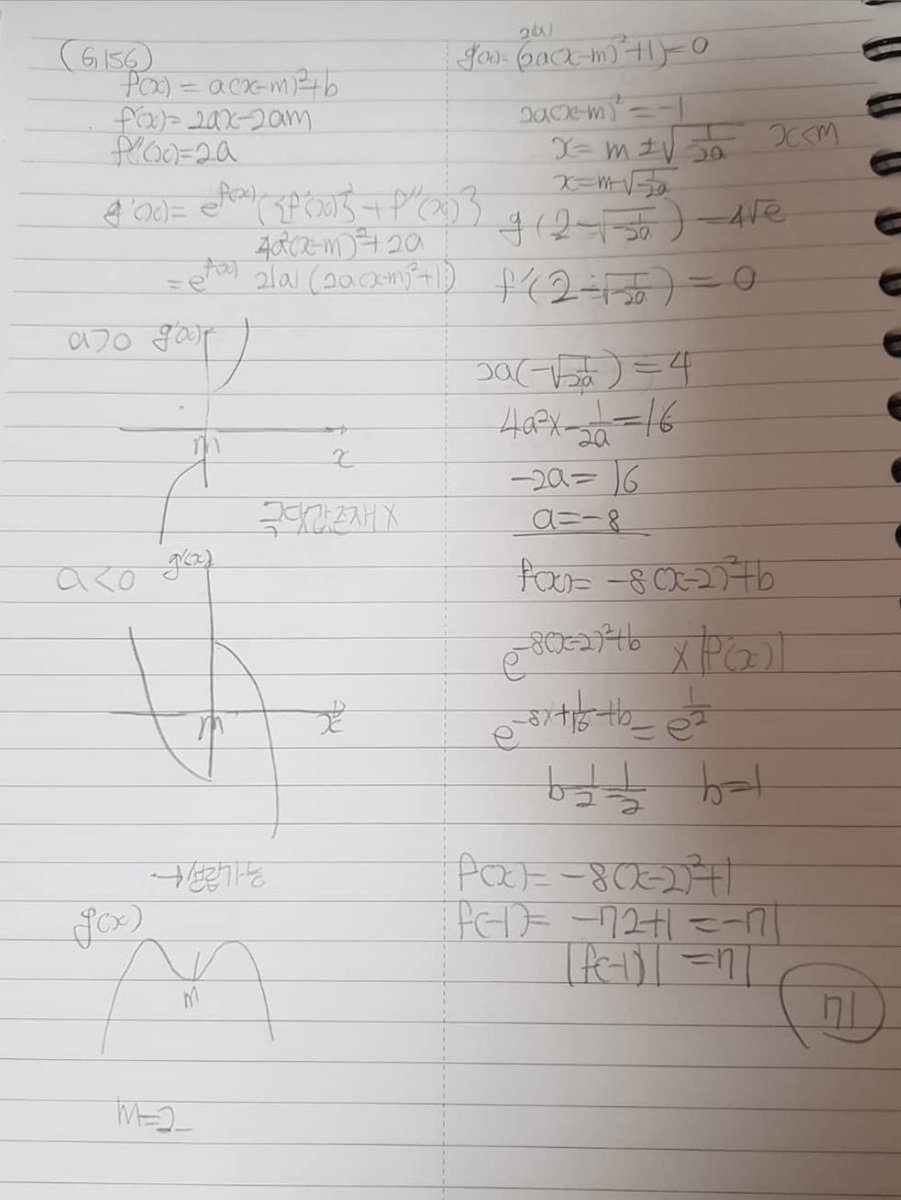 (6156)
f(x) = a(x-m)²+b
f'(x)= 2ax-2am
f''(x)=2a
g'(x)= e^f(x) ( {f'(x)}² + f''(x) }
4a²(x-m)²+2a
= e^f(x) 2|a| (2a(x-m)²+1)
a>0 g'(x)
m
x
극댓값존재X
a<0 g'(x)
m
x
g(x)
m
m=2
2|a|
g'(x)= (2a(x-m)²+1)=0
2a(x-m)² = -1
x= m ±√-1/2a x<m
x=m-√-1/2a
g (2-√-1/2a) = 4√e
f'(2-√-1/2a) = 0
2a(-√-1/2a) = 4
4a²x-1/2a=16
-2a= 16
a=-8
f(x)= -8(x-2)²+b
e^-8(x-2)²+b x|f'(x)|
e^-8x+1/16+b = e^1/2
b-1/2=1/2 b=1
f(x)= -8(x-2)²+1
f(-1)= -72+1 =-71
|f(-1)| =71
71